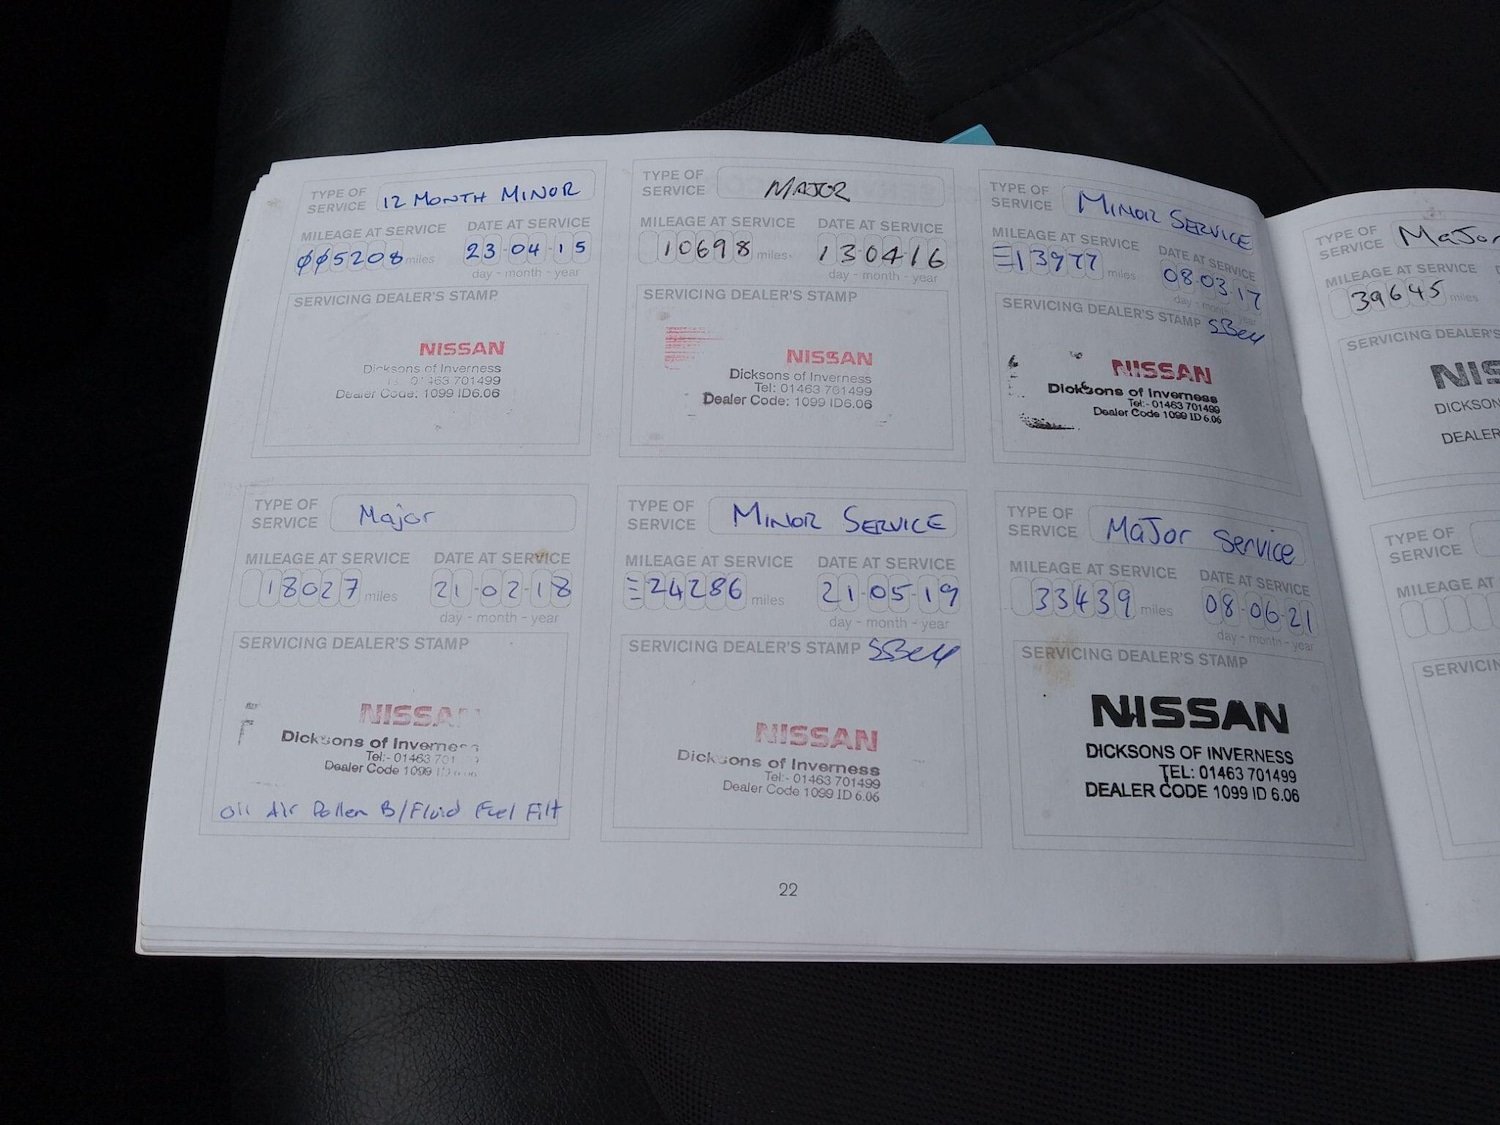 TYPE OF SERVICE 12 MONTH MINOR
MILEAGE AT SERVICE DATE AT SERVICE
005208 miles 23-04-15
day - month - year
SERVICING DEALER'S STAMP
NISSAN
Dicksons of Inverness
01463 701499
Dealer Code: 1099 ID6.06
TYPE OF SERVICE MAJOR
MILEAGE AT SERVICE DATE AT SERVICE
10698 miles 13 04 16
day - month - year
SERVICING DEALER'S STAMP
NISSAN
Dicksons of Inverness
Tel: 01463 701499
Dealer Code: 1099 ID6.06
TYPE OF SERVICE MINOR SERVICE
MILEAGE AT SERVICE DATE AT SERVICE
13977 miles 08-03-17
day - month - year
SERVICING DEALER'S STAMP
NISSAN
Dicksons of Inverness
Tel:- 01463 701499
Dealer Code 1099 ID 6.06
TYPE OF SERVICE Major
MILEAGE AT SERVICE DATE AT SERVICE
18027 miles 21-02-18
day - month - year
SERVICING DEALER'S STAMP
NISSAN
Dicksons of Inverness
Tel:- 01463 701
Dealer Code 1099 ID
Oil Air Pollen B/Fluid Fuel Filt
TYPE OF SERVICE MINOR SERVICE
MILEAGE AT SERVICE DATE AT SERVICE
24286 miles 21-05-19
day - month - year
SERVICING DEALER'S STAMP
NISSAN
Dicksons of Inverness
Tel:- 01463 701499
Dealer Code 1099 ID 6.06
TYPE OF SERVICE MaJor Service
MILEAGE AT SERVICE DATE AT SERVICE
33439 miles 08-06-21
day - month - year
SERVICING DEALER'S STAMP
NISSAN
DICKSONS OF INVERNESS
TEL: 01463 701499
DEALER CODE 1099 ID 6.06
22
TYPE OF SERVICE MaJor
MILEAGE AT SERVICE
39645 miles
SERVICING DEALER'S STAMP
NIS
DICKSON
DEALER
TYPE OF SERVICE
MILEAGE AT
SERVICIN